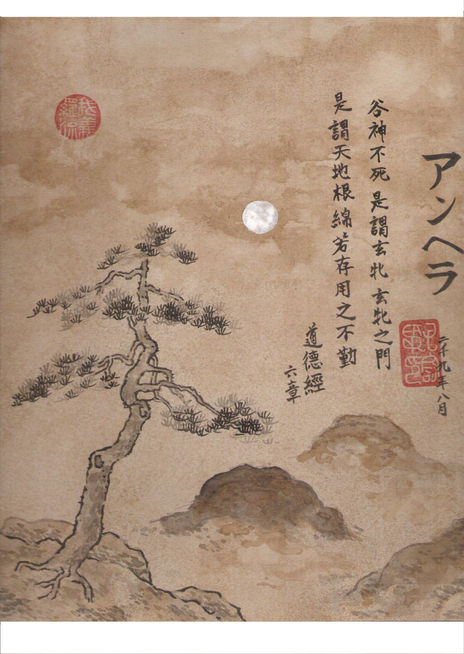 アンヘラ
二千九年八月
谷神不死 是謂玄牝 玄牝之門
是謂天地根綿々若存用之不勤
道德經
六章